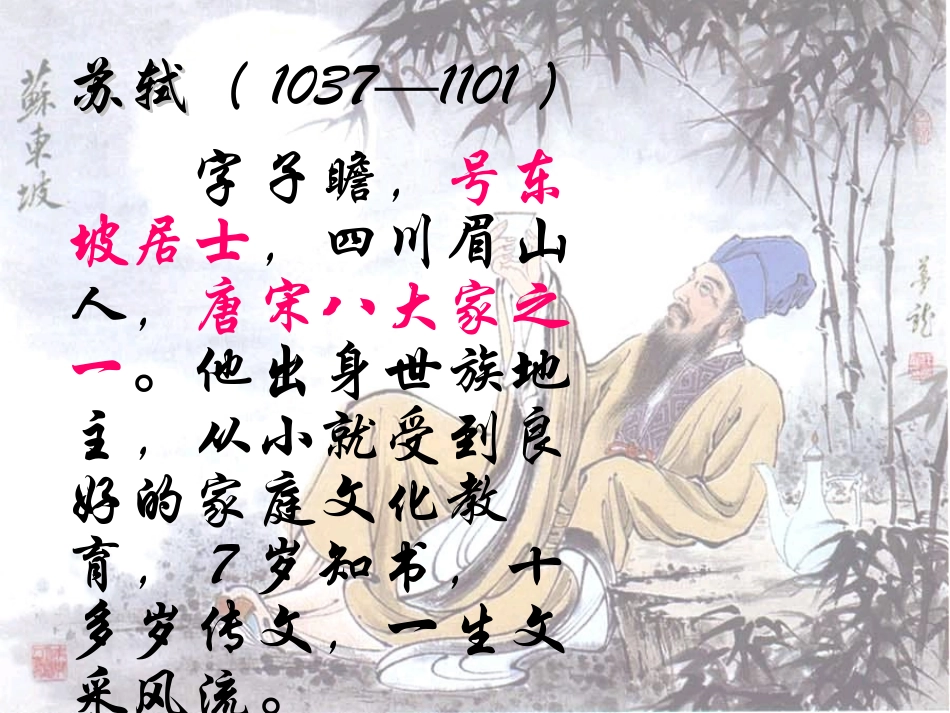 苏轼（1037—1101）
字子瞻，号东
坡居士，四川眉山
人，唐宋八大家之
一。他出身世族地
主，从小就受到良
好的家庭文化教
育，7岁知书，十
多岁传文，一生文
采风流。
蘇東坡